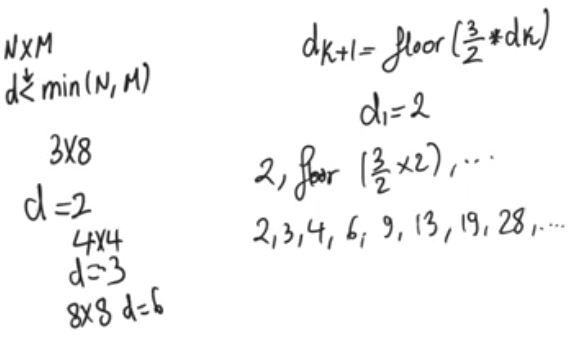 NXM
d < min(N, M)
3X8
d = 2
4X4
d = 3
8X8 d=6
dk+1 = floor (3/2 * dk)
d1 = 2
2, floor (3/2 x 2), ...
2, 3, 4, 6, 9, 13, 19, 28, ...